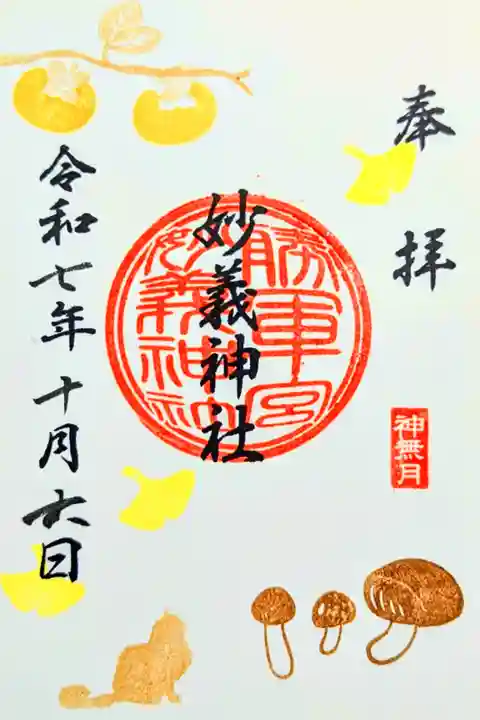 奉拝
神無月
妙義神社
勝軍宮
妙義神社
令和七年十月六日